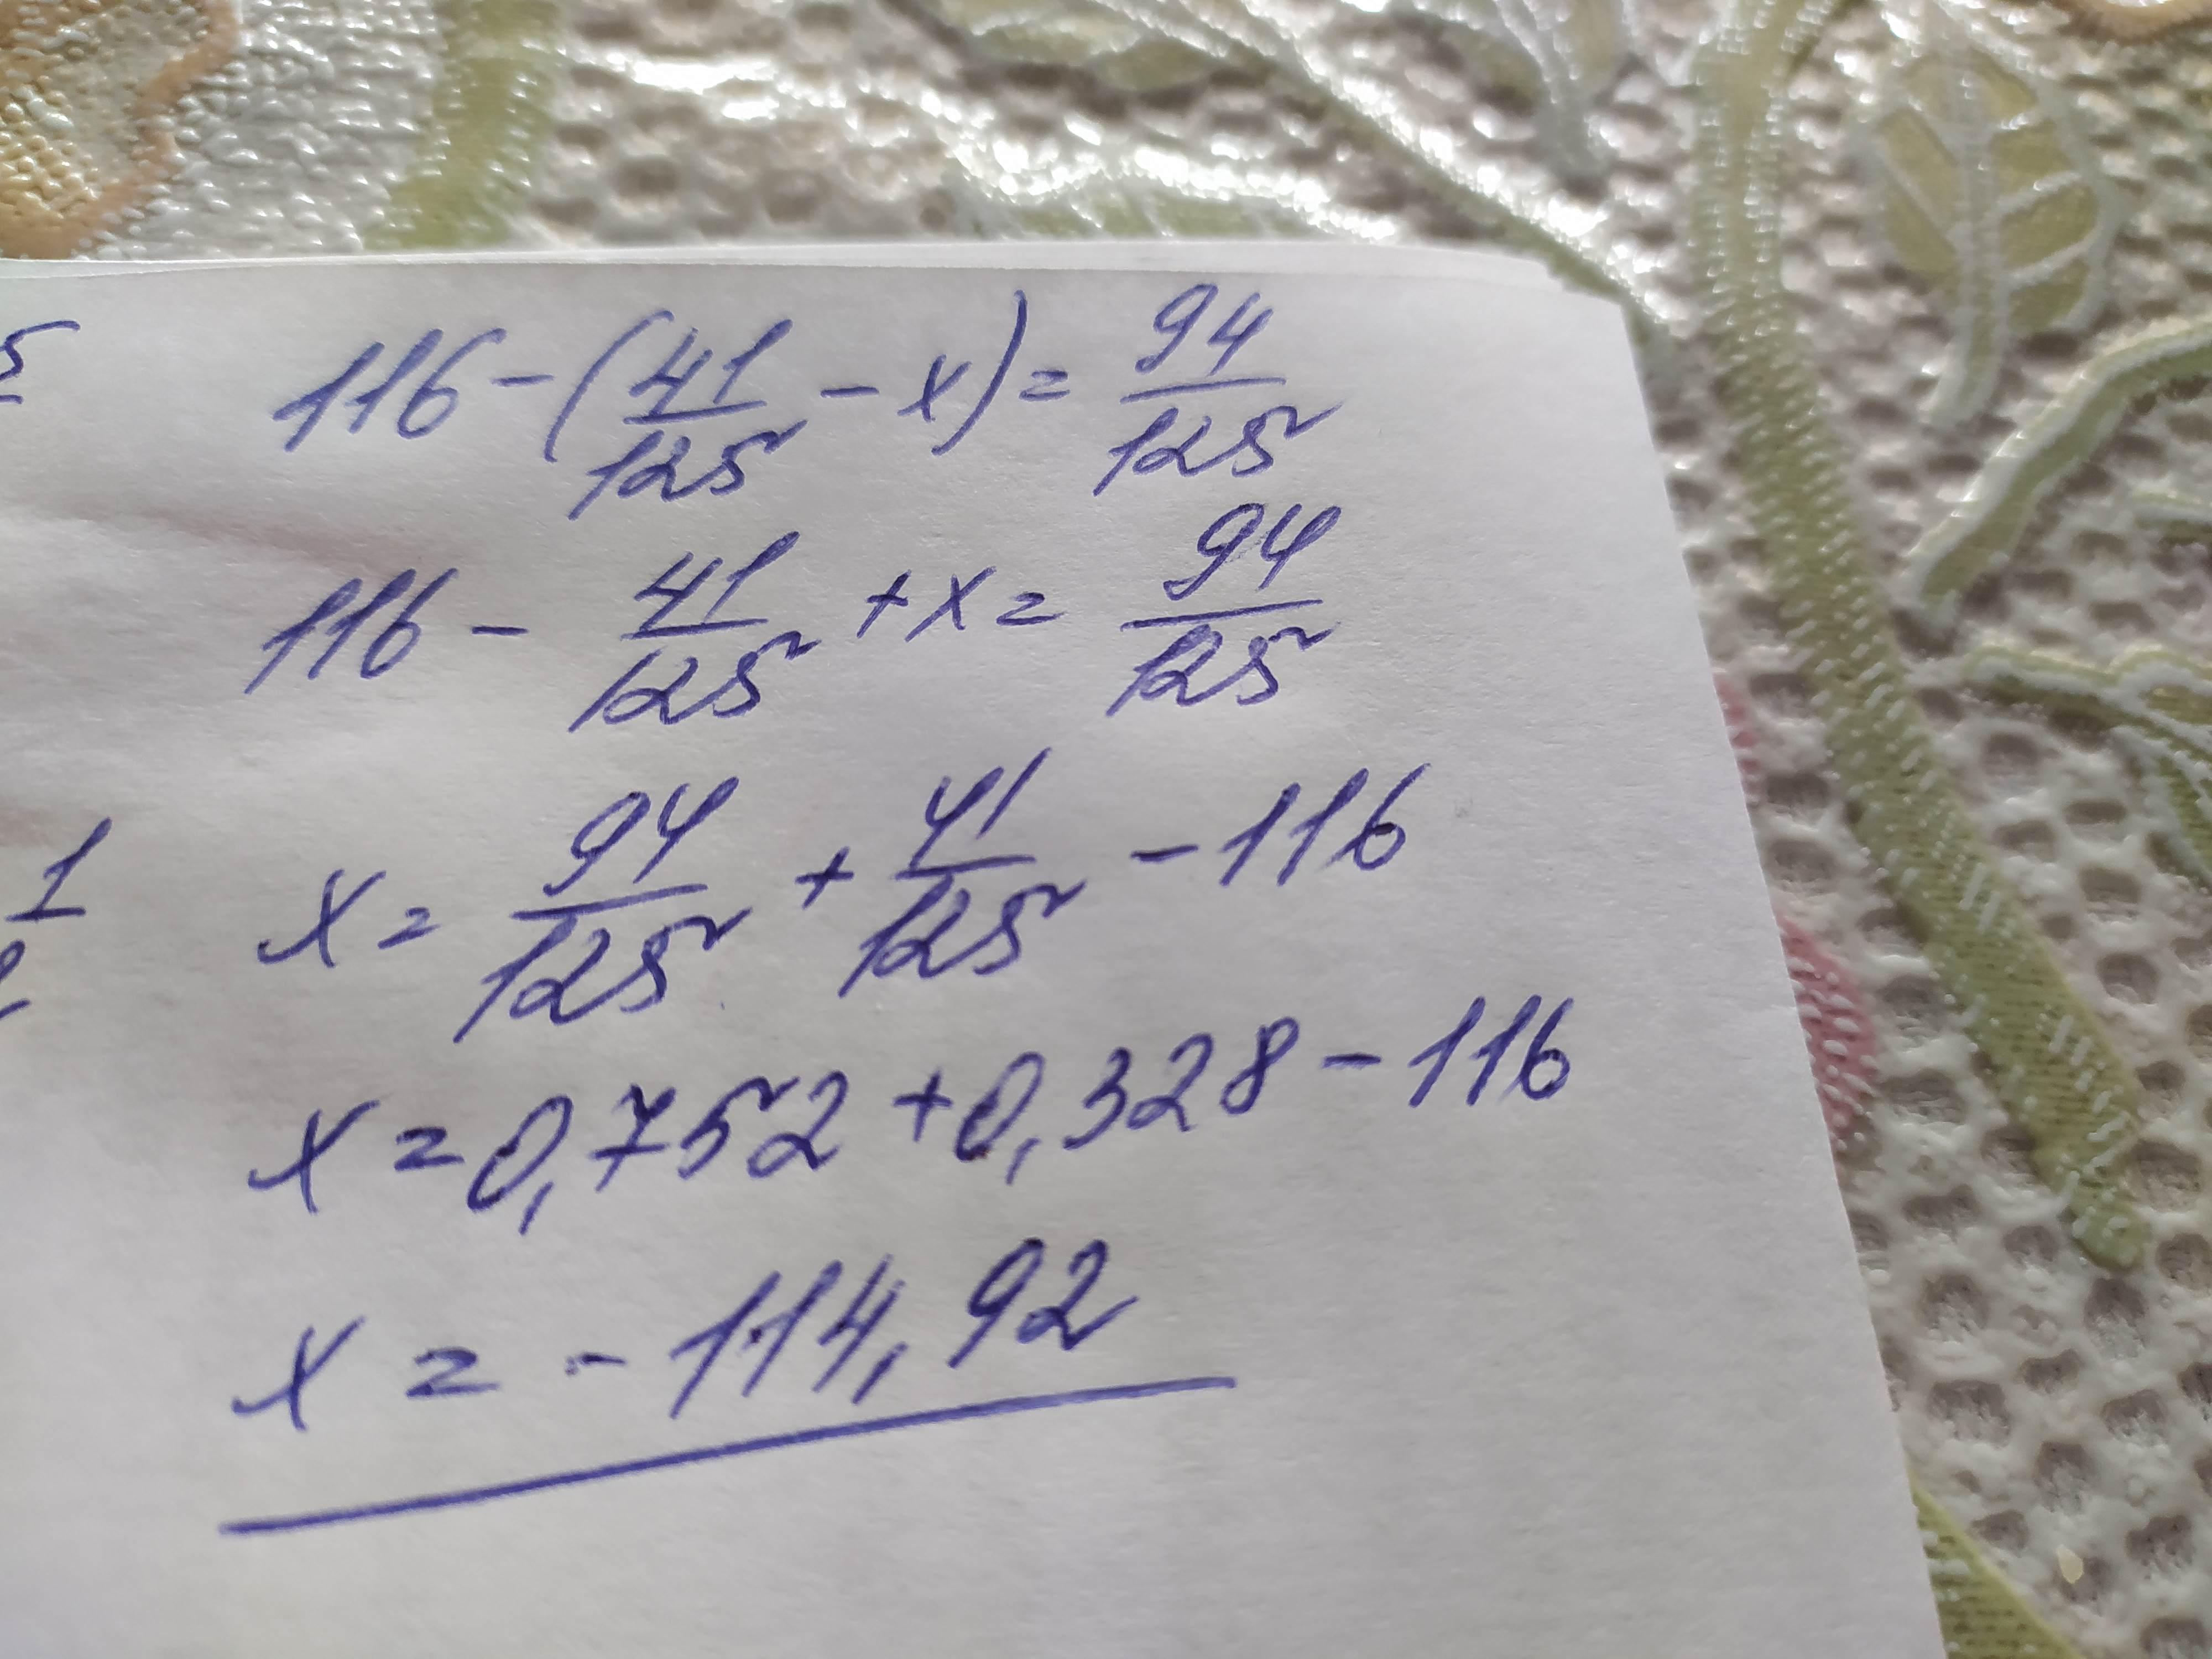 116 - (41/125 - x) = 94/125
116 - 41/125 + x = 94/125
x = 94/125 + 41/125 - 116
x = 0,752 + 0,328 - 116
x = - 114,92